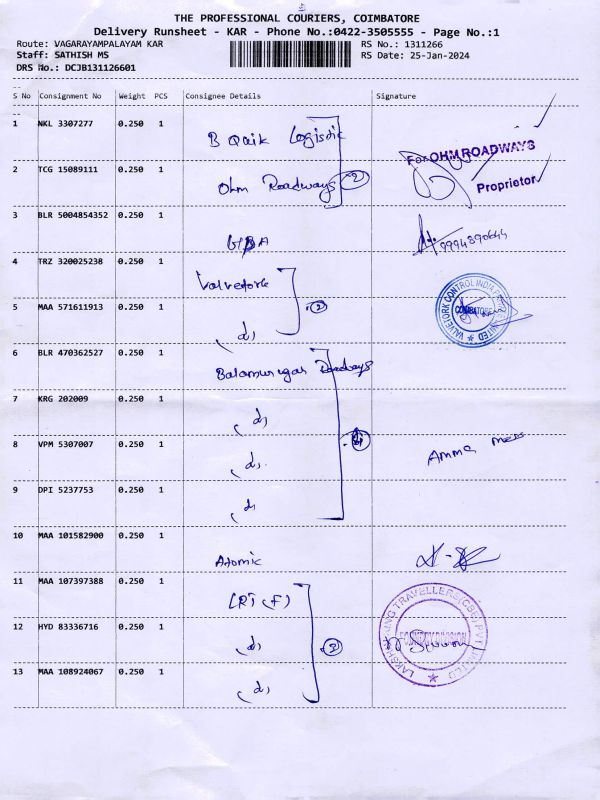 THE PROFESSIONAL COURIERS, COIMBATORE
Delivery Runsheet - KAR - Phone No.:0422-3505555 - Page No.:1
Route: VAGARAYAMPALAYAM KAR
RS No.: 1311266
Staff: SATHISH MS
RS Date: 25-Jan-2024
DRS No.: DCJB131126601
S No Consignment No Weight PCS Consignee Details Signature
1 NKL 3307277 0.250 1 B Qaik Logistic
2 TCG 15089111 0.250 1 Ohm Roadways 2
For OHM ROADWAYS
Proprietor
3 BLR 5004854352 0.250 1
9994890644
4 TRZ 320025238 0.250 1 Valvetork
5 MAA 571611913 0.250 1 (d) 2
VALVETORK CONTROL INDIA PRIVATE LIMITED
COIMBATORE
6 BLR 470362527 0.250 1 Balamurugan Roadways
7 KRG 202009 0.250 1 (d)
8 VPM 5307007 0.250 1 (d) Amma
9 DPI 5237753 0.250 1 (d)
10 MAA 101582900 0.250 1 Atomic
11 MAA 107397388 0.250 1 LRT (F)
12 HYD 83336716 0.250 1 (d) 3
13 MAA 108924067 0.250 1 (d)
TRAVELLERS(CBE) PVT LIMITED